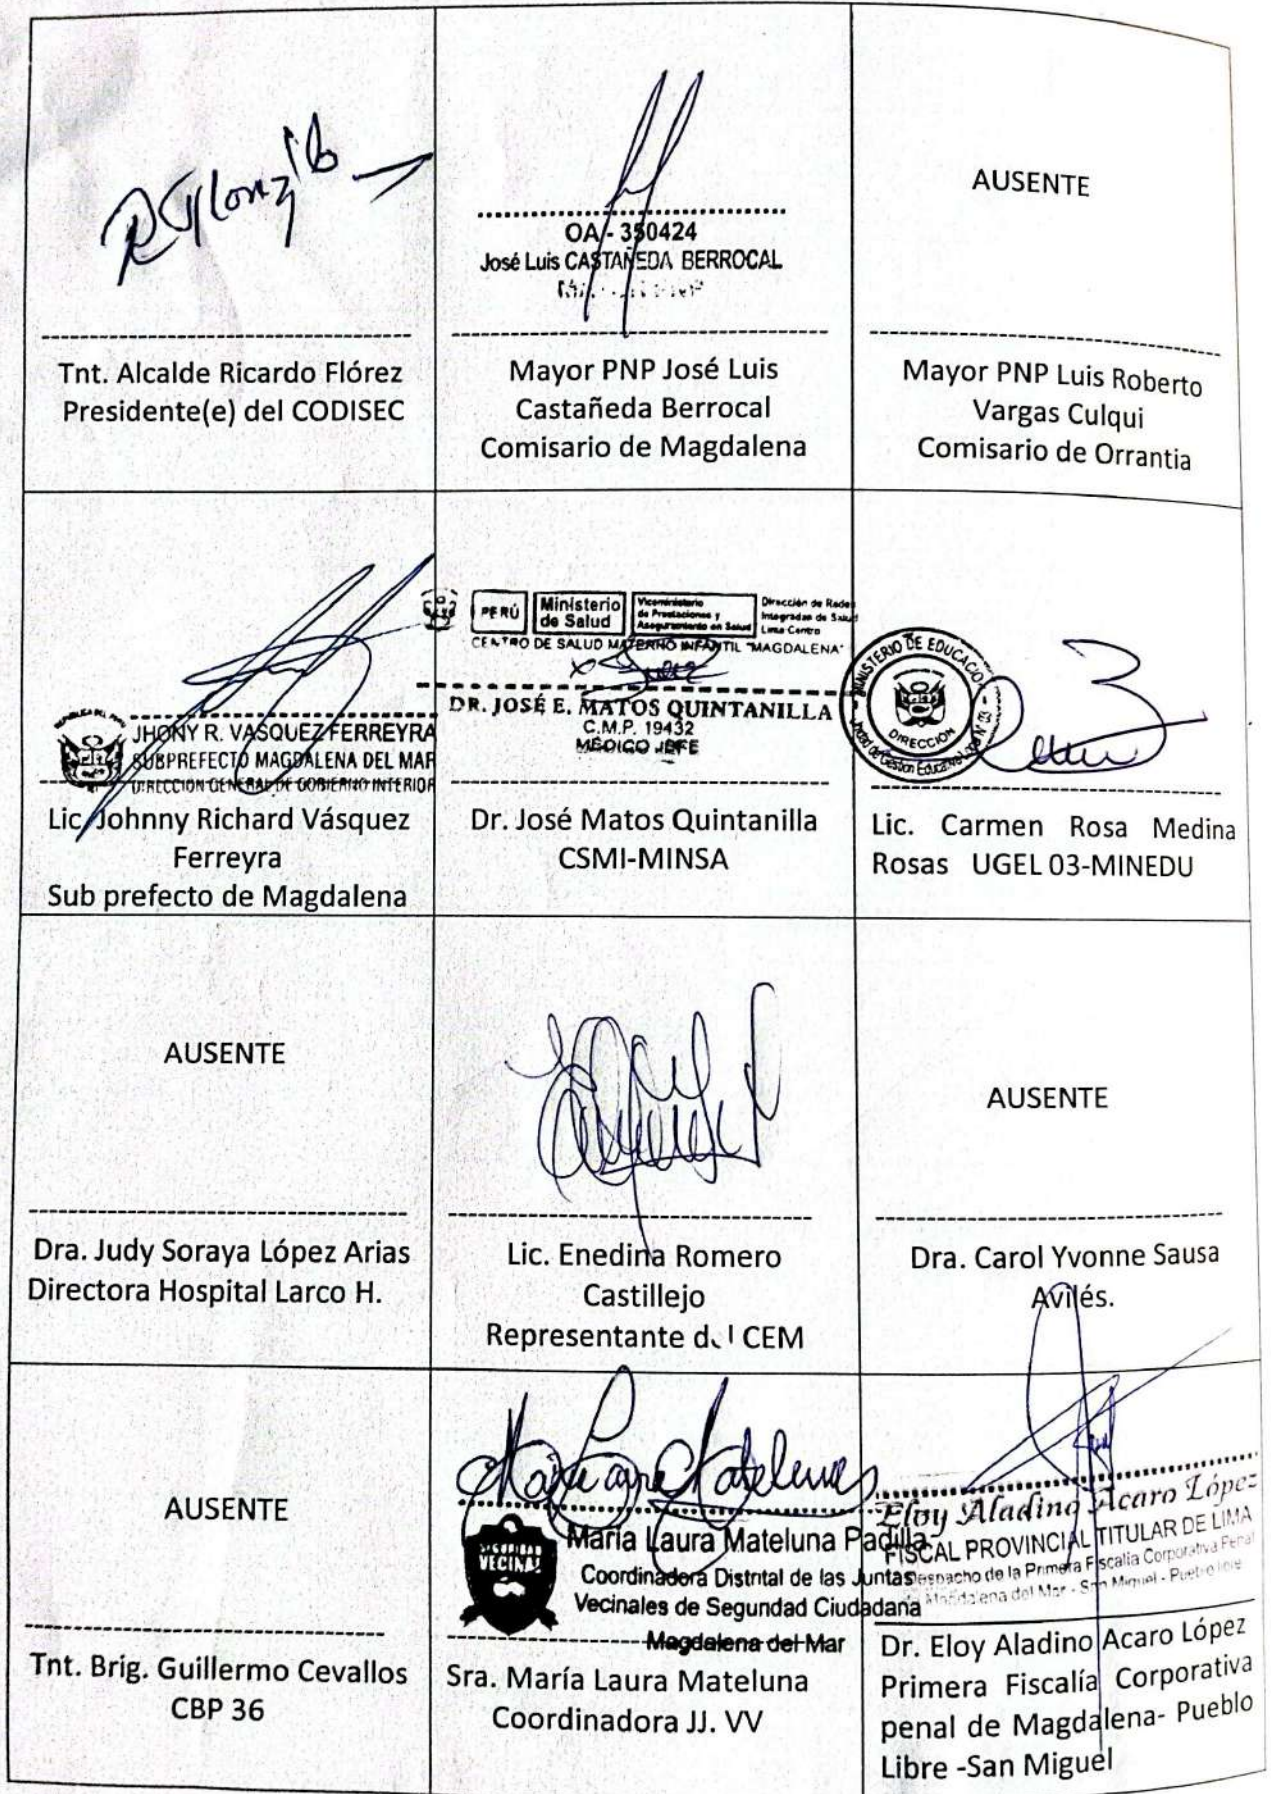 OA - 350424
José Luis CASTAÑEDA BERROCAL
Tnt. Alcalde Ricardo Flórez
Presidente(e) del CODISEC
Mayor PNP José Luis
Castañeda Berrocal
Comisario de Magdalena
AUSENTE
Mayor PNP Luis Roberto
Vargas Culqui
Comisario de Orrantia
REPUBLICA DEL PERU
JHONY R. VASQUEZ FERREYRA
SUBPREFECTO MAGDALENA DEL MAR
DIRECCION GENERAL DE GOBIERNO INTERIOR
Lic. Johnny Richard Vásquez
Ferreyra
Sub prefecto de Magdalena
PERÚ
Ministerio
de Salud
Viceministerio
de Prestaciones y
Aseguramiento en Salud
Dirección de Redes
Integradas de Salud
Lima Centro
CENTRO DE SALUD MATERNO INFANTIL "MAGDALENA"
DR. JOSÉ E. MATOS QUINTANILLA
C.M.P. 19432
MÉDICO JEFE
Dr. José Matos Quintanilla
CSMI-MINSA
MINISTERIO DE EDUCACIÓN
DIRECCIÓN
Unidad de Gestión Educativa Local N° 03
Lic. Carmen Rosa Medina
Rosas UGEL 03-MINEDU
AUSENTE
Dra. Judy Soraya López Arias
Directora Hospital Larco H.
Lic. Enedina Romero
Castillejo
Representante del CEM
AUSENTE
Dra. Carol Yvonne Sausa
Avilés.
AUSENTE
Tnt. Brig. Guillermo Cevallos
CBP 36
SEGURIDAD
VECINAL
María Laura Mateluna Padilla
Coordinadora Distrital de las Juntas
Vecinales de Seguridad Ciudadana
Magdalena del Mar
Sra. María Laura Mateluna
Coordinadora JJ. VV
Eloy Aladino Acaro López
FISCAL PROVINCIAL TITULAR DE LIMA
Despacho de la Primera Fiscalía Corporativa Penal
de Magdalena del Mar - San Miguel - Pueblo libre
Dr. Eloy Aladino Acaro López
Primera Fiscalía Corporativa
penal de Magdalena- Pueblo
Libre -San Miguel